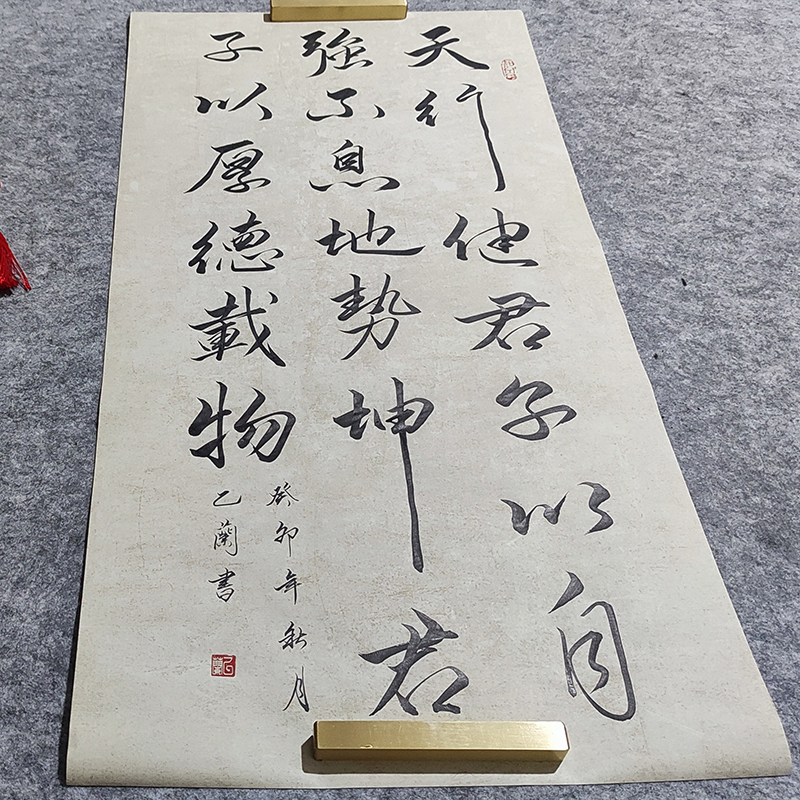 天行健君子以自
强不息地势坤君
子以厚德載物
癸卯年秋月
乙蘭書